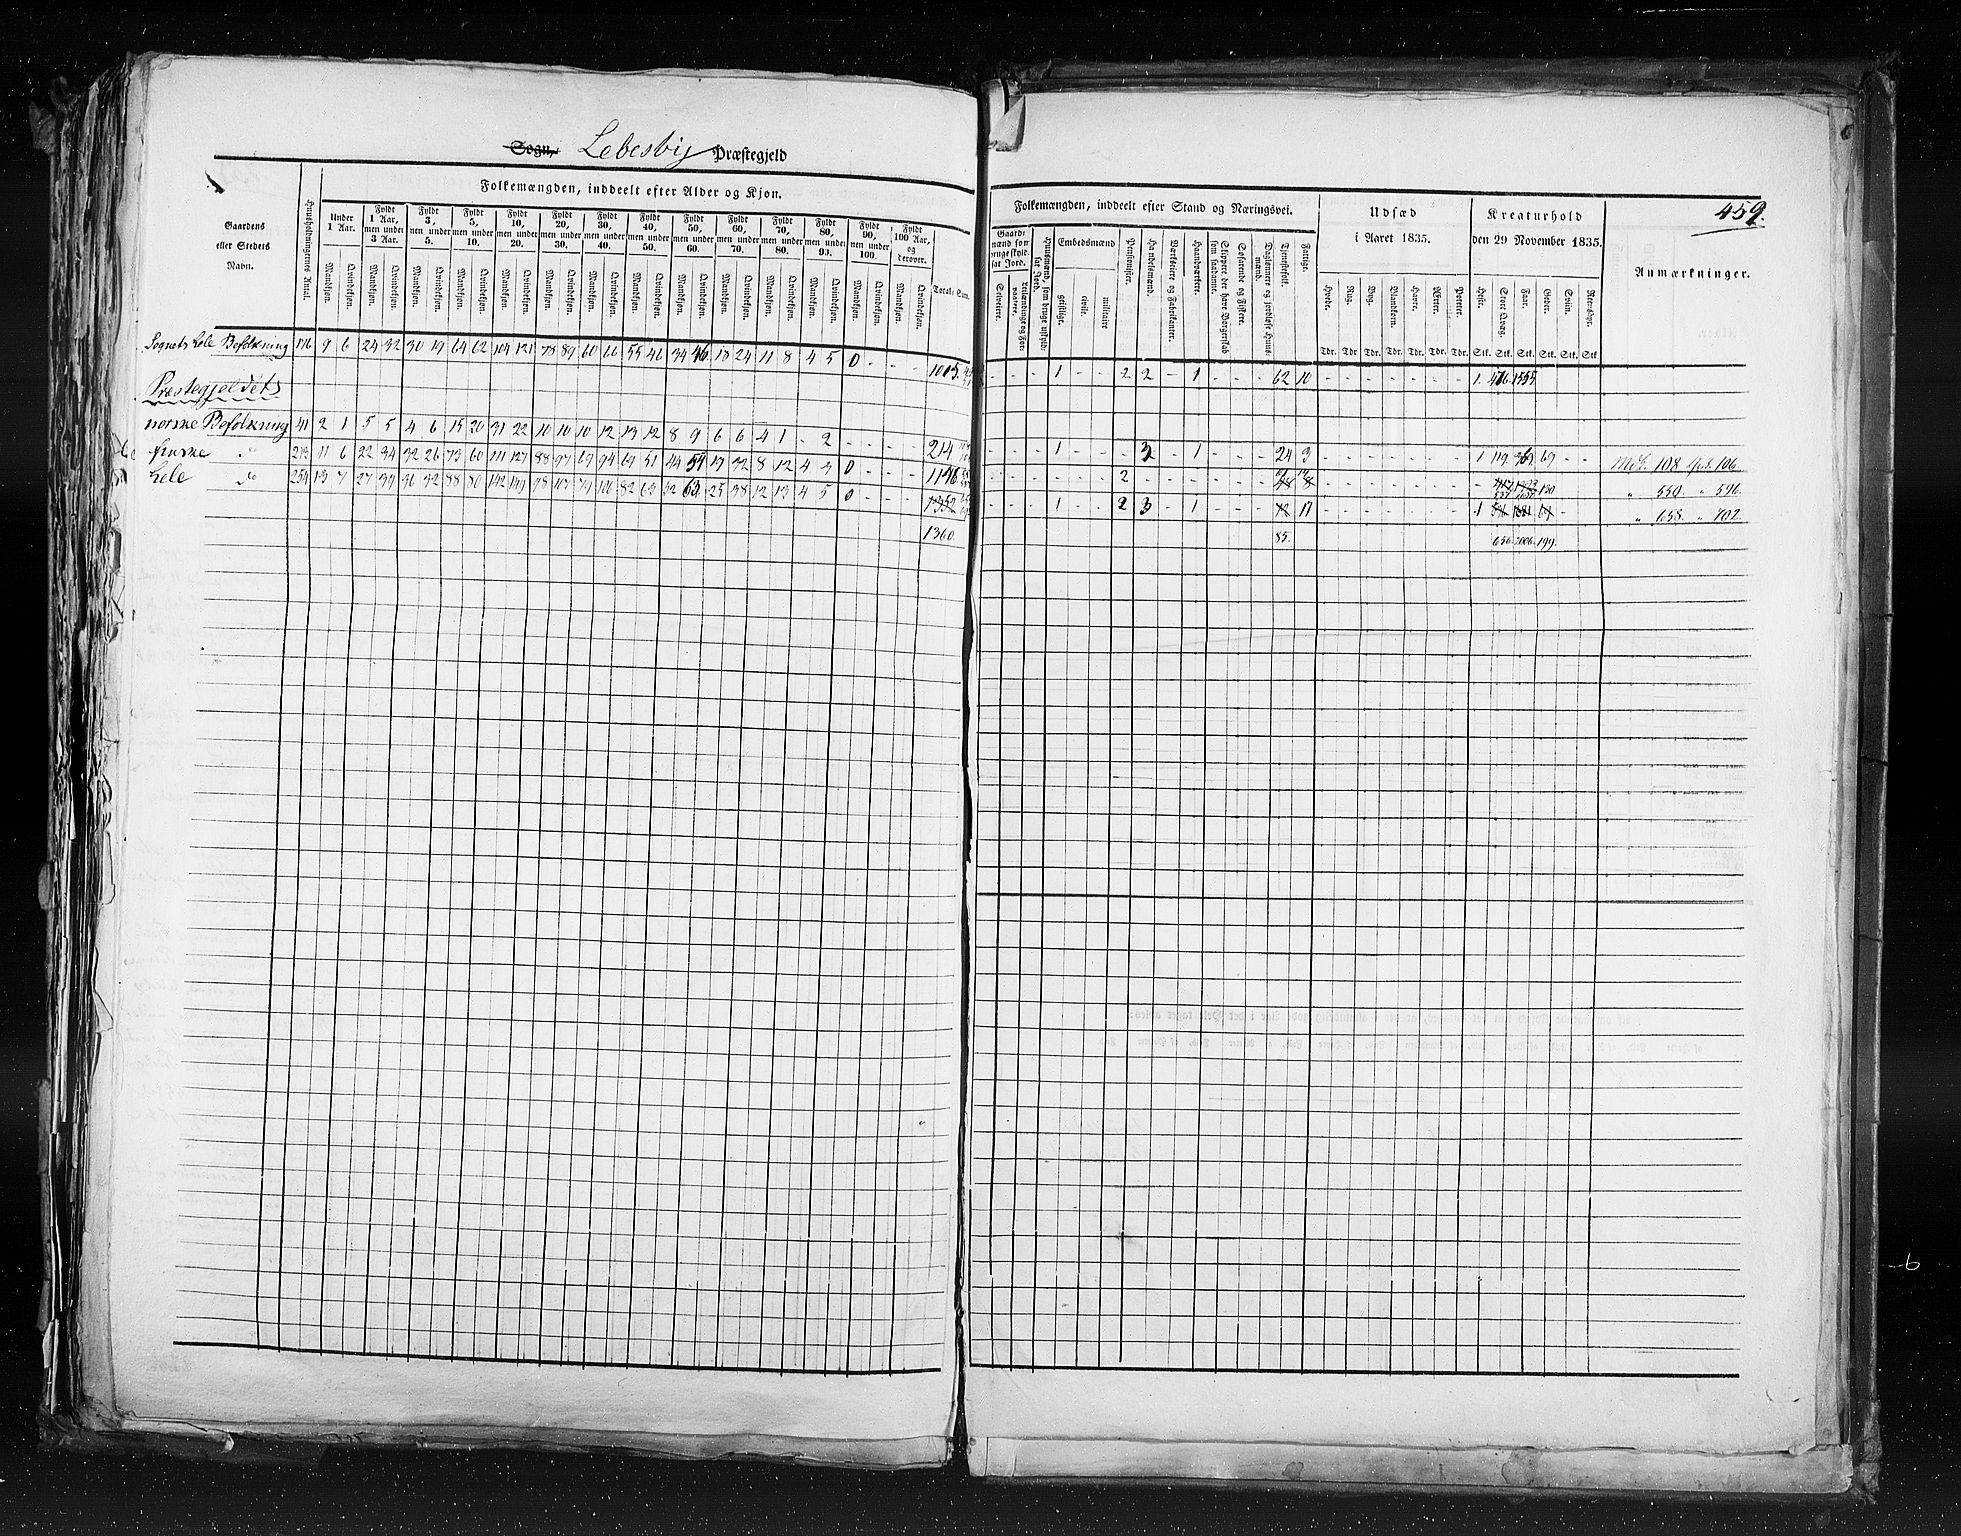 Sogn, Lebesby Præstegjeld
459.
Gaardens eller Stedets Navn.
Huusholdningernes Antal.
Folkemængden, inddeelt efter Alder og Kjøn.
Under 1 Aar.
Fyldt 1 Aar, men under 3 Aar.
Fyldt 3, men under 5.
Fyldt 5, men under 10.
Fyldt 10, men under 20.
Fyldt 20, men under 30.
Fyldt 30, men under 40.
Fyldt 40, men under 50.
Fyldt 50, men under 60.
Fyldt 60, men under 70.
Fyldt 70, men under 80.
Fyldt 80, men under 90.
Fyldt 90, men under 100.
Fyldt 100 Aar, og derover.
Mandkjøn. Qvindekjøn. Mandkjøn. Qvindekjøn. Mandkjøn. Qvindekjøn. Mandkjøn. Qvindekjøn. Mandkjøn. Qvindekjøn. Mandkjøn. Qvindekjøn. Mandkjøn. Qvindekjøn. Mandkjøn. Qvindekjøn. Mandkjøn. Qvindekjøn. Mandkjøn. Qvindekjøn. Mandkjøn. Qvindekjøn. Mandkjøn. Qvindekjøn. Mandkjøn. Qvindekjøn. Mandkjøn. Qvindekjøn.
Total-Sum.
Folkemængden, inddeelt efter Stand og Næringsvei.
Selveiere.
Huusmænd, som bruge uskyldsat Jord.
Embedsmænd
geistlige.
civile.
militaire
Pensionister.
Handelsmænd.
Værkseiere og Fabrikanter.
Haandværkere.
Skippere der have Borgerskab som saadanne.
Søfarende og Fiskere.
Daglønnere og jordløse Huusmænd.
Tjenestefolk.
Fattige.
Udsæd i Aaret 1835.
Hvede. Rug. Byg. Blandkorn. Havre. Ærter. Poteter.
Tdr. Tdr Tdr. Tdr. Tdr. Tdr. Tdr.
Kreaturhold den 29 November 1835.
Heste. Stort Qvæg. Faar. Geder. Sviin. Reensdyr.
Stk. Stk. Stk. Stk. Stk. Stk
Anmærkninger.
Sognets hele Befolkning 176 9 6 24 32 30 19 64 62 104 121 78 89 60 66 55 46 34 36 18 24 11 8 4 5 0 - - - 1005
- - - 1 - - 2 2 - 1 - - - 62 10 - - - - - - - 1 476 1535
Præstegjeldets
norske Befolkning 41 2 1 5 5 4 6 15 20 31 22 10 10 10 12 13 12 8 9 6 6 4 1 - 2 - - - - 214
- - - 1 - - - 3 - 1 - - - 24 3 - - - - - - - 1 119 69
Mk. 108 Qvk. 106.
finske do 213 11 6 22 34 32 26 73 60 111 127 88 97 69 94 69 51 44 54 19 32 8 12 4 3 0 - - - 1146
2 130
" 550. " 596.
hele do 254 13 7 27 39 36 32 88 80 142 149 98 107 79 106 82 63 52 63 25 38 12 13 4 5 0 - - - 1352
- - - 1 - - 2 3 - 1 - - - 17 - - - - - - - 1
" 658. " 702.
1360.
85.
656. 2006. 199.